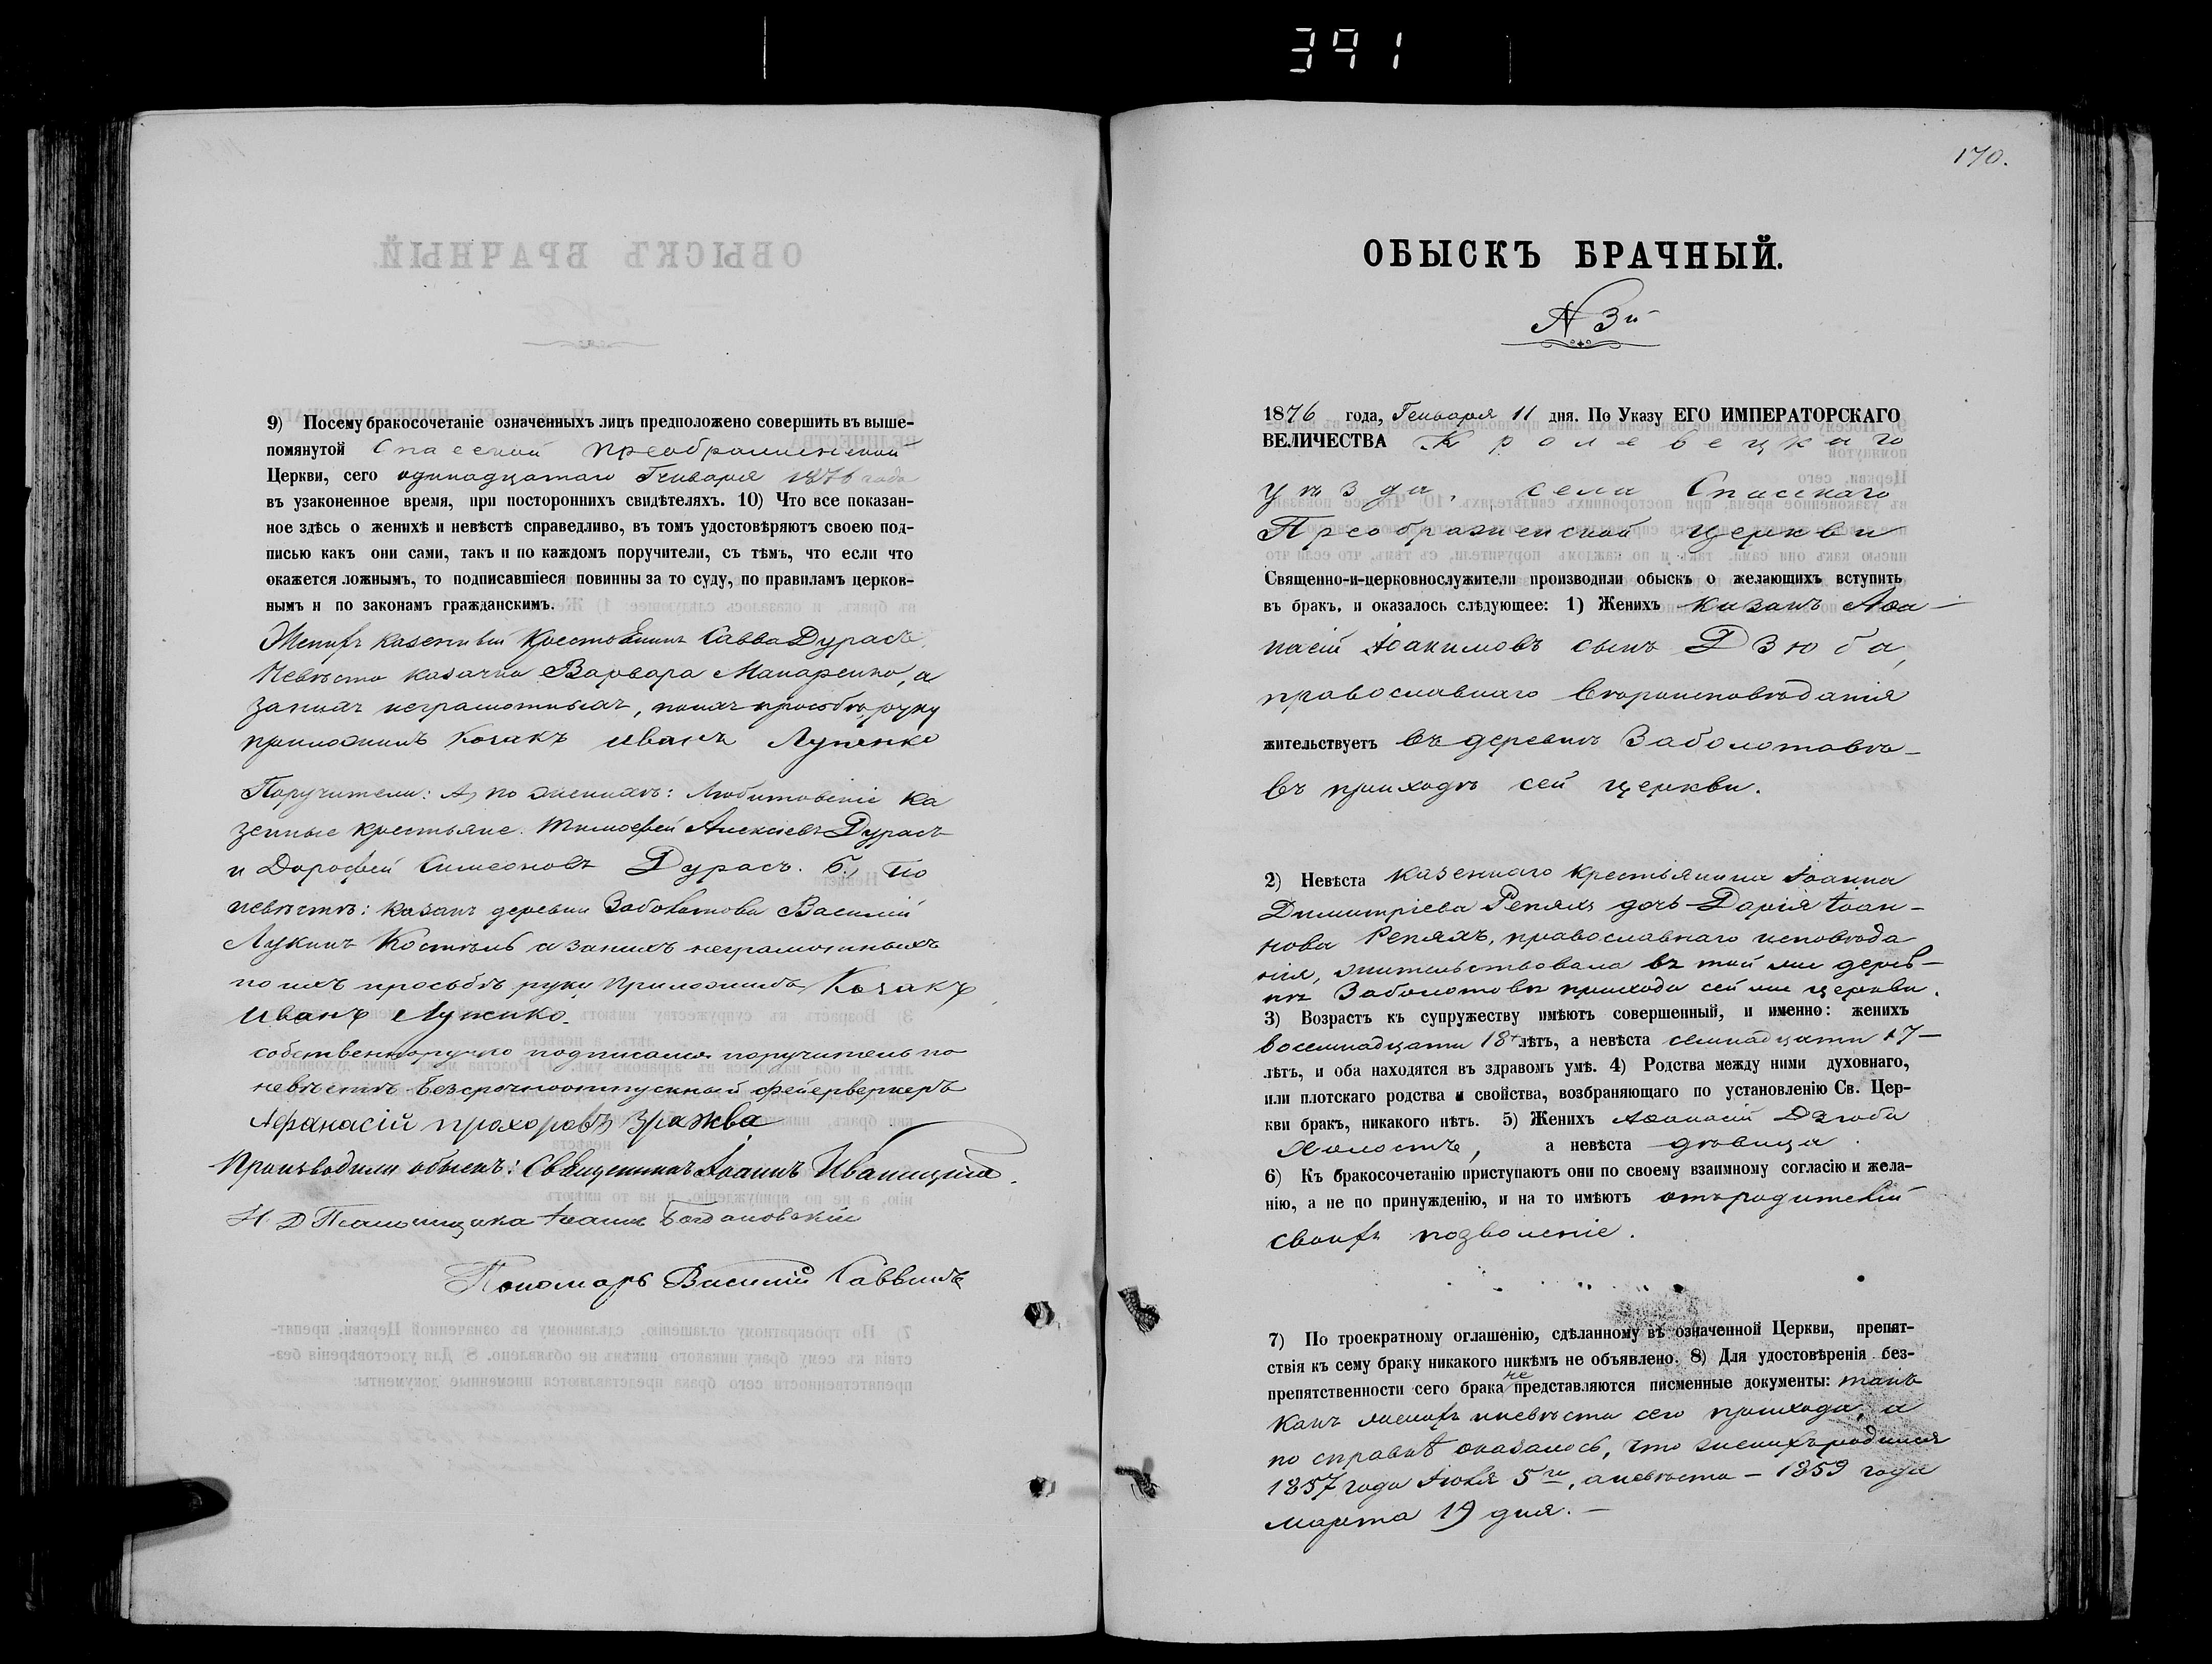 391
9) Посему бракосочетаніе означенныхъ лицъ предположено совершить въ выше-
помянутой Спасской Преображенской
Церкви, сего одинадцатаго Генваря 1876 года
въ узаконенное время, при постороннихъ свидѣтеляхъ. 10) Что все показан-
ное здѣсь о женихѣ и невѣстѣ справедливо, въ томъ удостовѣряютъ своею под-
писью какъ они сами, такъ и по каждомъ поручители, съ тѣмъ, что если что
окажется ложнымъ, то подписавшіеся повинны за то суду, по правиламъ церков-
нымъ и по законамъ гражданскимъ.
Женихъ казенный крестьянинъ Савва Дурасъ
Невѣста казачка Варвара Макаренко, а
за нихъ неграмотныхъ, по ихъ прозбѣ, руку
приложилъ Козакъ Иванъ Лупенко
Поручители: А, по женихѣ: Любитовскіе ка
зенные крестьяне. Тимофей Алексіевъ Дурасъ
и Дорофей Симеоновъ Дурасъ. Б., По
невѣстѣ: казакъ деревни Заболотова Василій
Лукинъ а за нихъ неграмотныхъ
по ихъ просьбѣ руку приложилъ Козакъ
Иванъ
собственноручно подписался поручитель по
невѣстѣ безсрочноотпускный фейерверкеръ
Афанасій прохоровъ Зражва
Производили обыскъ: Священникъ Іоаннъ Иваницкій
И Д Псаломщика Іоаннъ Богдановскій
Пономарь Василій Саввичъ
170.
ОБЫСКЪ БРАЧНЫЙ.
N 3й
1876 года, Генваря 11 дня. По Указу ЕГО ИМПЕРАТОРСКАГО
ВЕЛИЧЕСТВА Кролевецкаго
уѣзда, села Спасскаго
Преображенской церкви
Священно-и-церковнослужители производили обыскъ о желающихъ вступить
въ бракъ, и оказалось слѣдующее: 1) Женихъ казакъ Аѳа-
насій Іоакимовъ сынъ Дзюба,
православнаго вѣроисповѣданія
жительствуетъ въ деревнѣ Заболотовѣ-
въ приходѣ сей церкви.
2) Невѣста казеннаго крестьянина Іоанна
Димитріева Репяхъ дочь Дарія Іоан-
нова Репяхъ, православнаго исповѣда
нія, жительствовала въ той же дерев-
нѣ Заболотовѣ прихода сей же церкви.
3) Возрастъ къ супружеству имѣютъ совершенный, и именно: женихъ
восемнадцати 18 лѣтъ, а невѣста семнадцати 17-
лѣтъ, и оба находятся въ здравомъ умѣ. 4) Родства между ними духовнаго,
или плотскаго родства и свойства, возбраняющаго по установленію Св. Цер-
кви бракъ, никакого нѣтъ. 5) Женихъ Аѳанасій Дзюба
Холостъ, а невѣста дѣвица.
6) Къ бракосочетанію приступаютъ они по своему взаимному согласію и жела-
нію, а не по принужденію, и на то имѣютъ отъ родителей
своихъ позволеніе.
7) По троекратному оглашенію, сдѣланному въ означенной Церкви, препят-
ствія къ сему браку никакого никѣмъ не объявлено. 8) Для удостовѣренія без-
препятственности сего брака не представляются писменные документы: такъ
какъ женихъ и невѣста сего прихода, а
по справкѣ оказалось, что женихъ родился
1857 года Іюля 5го, а невѣста - 1859 года
марта 19 дня.-